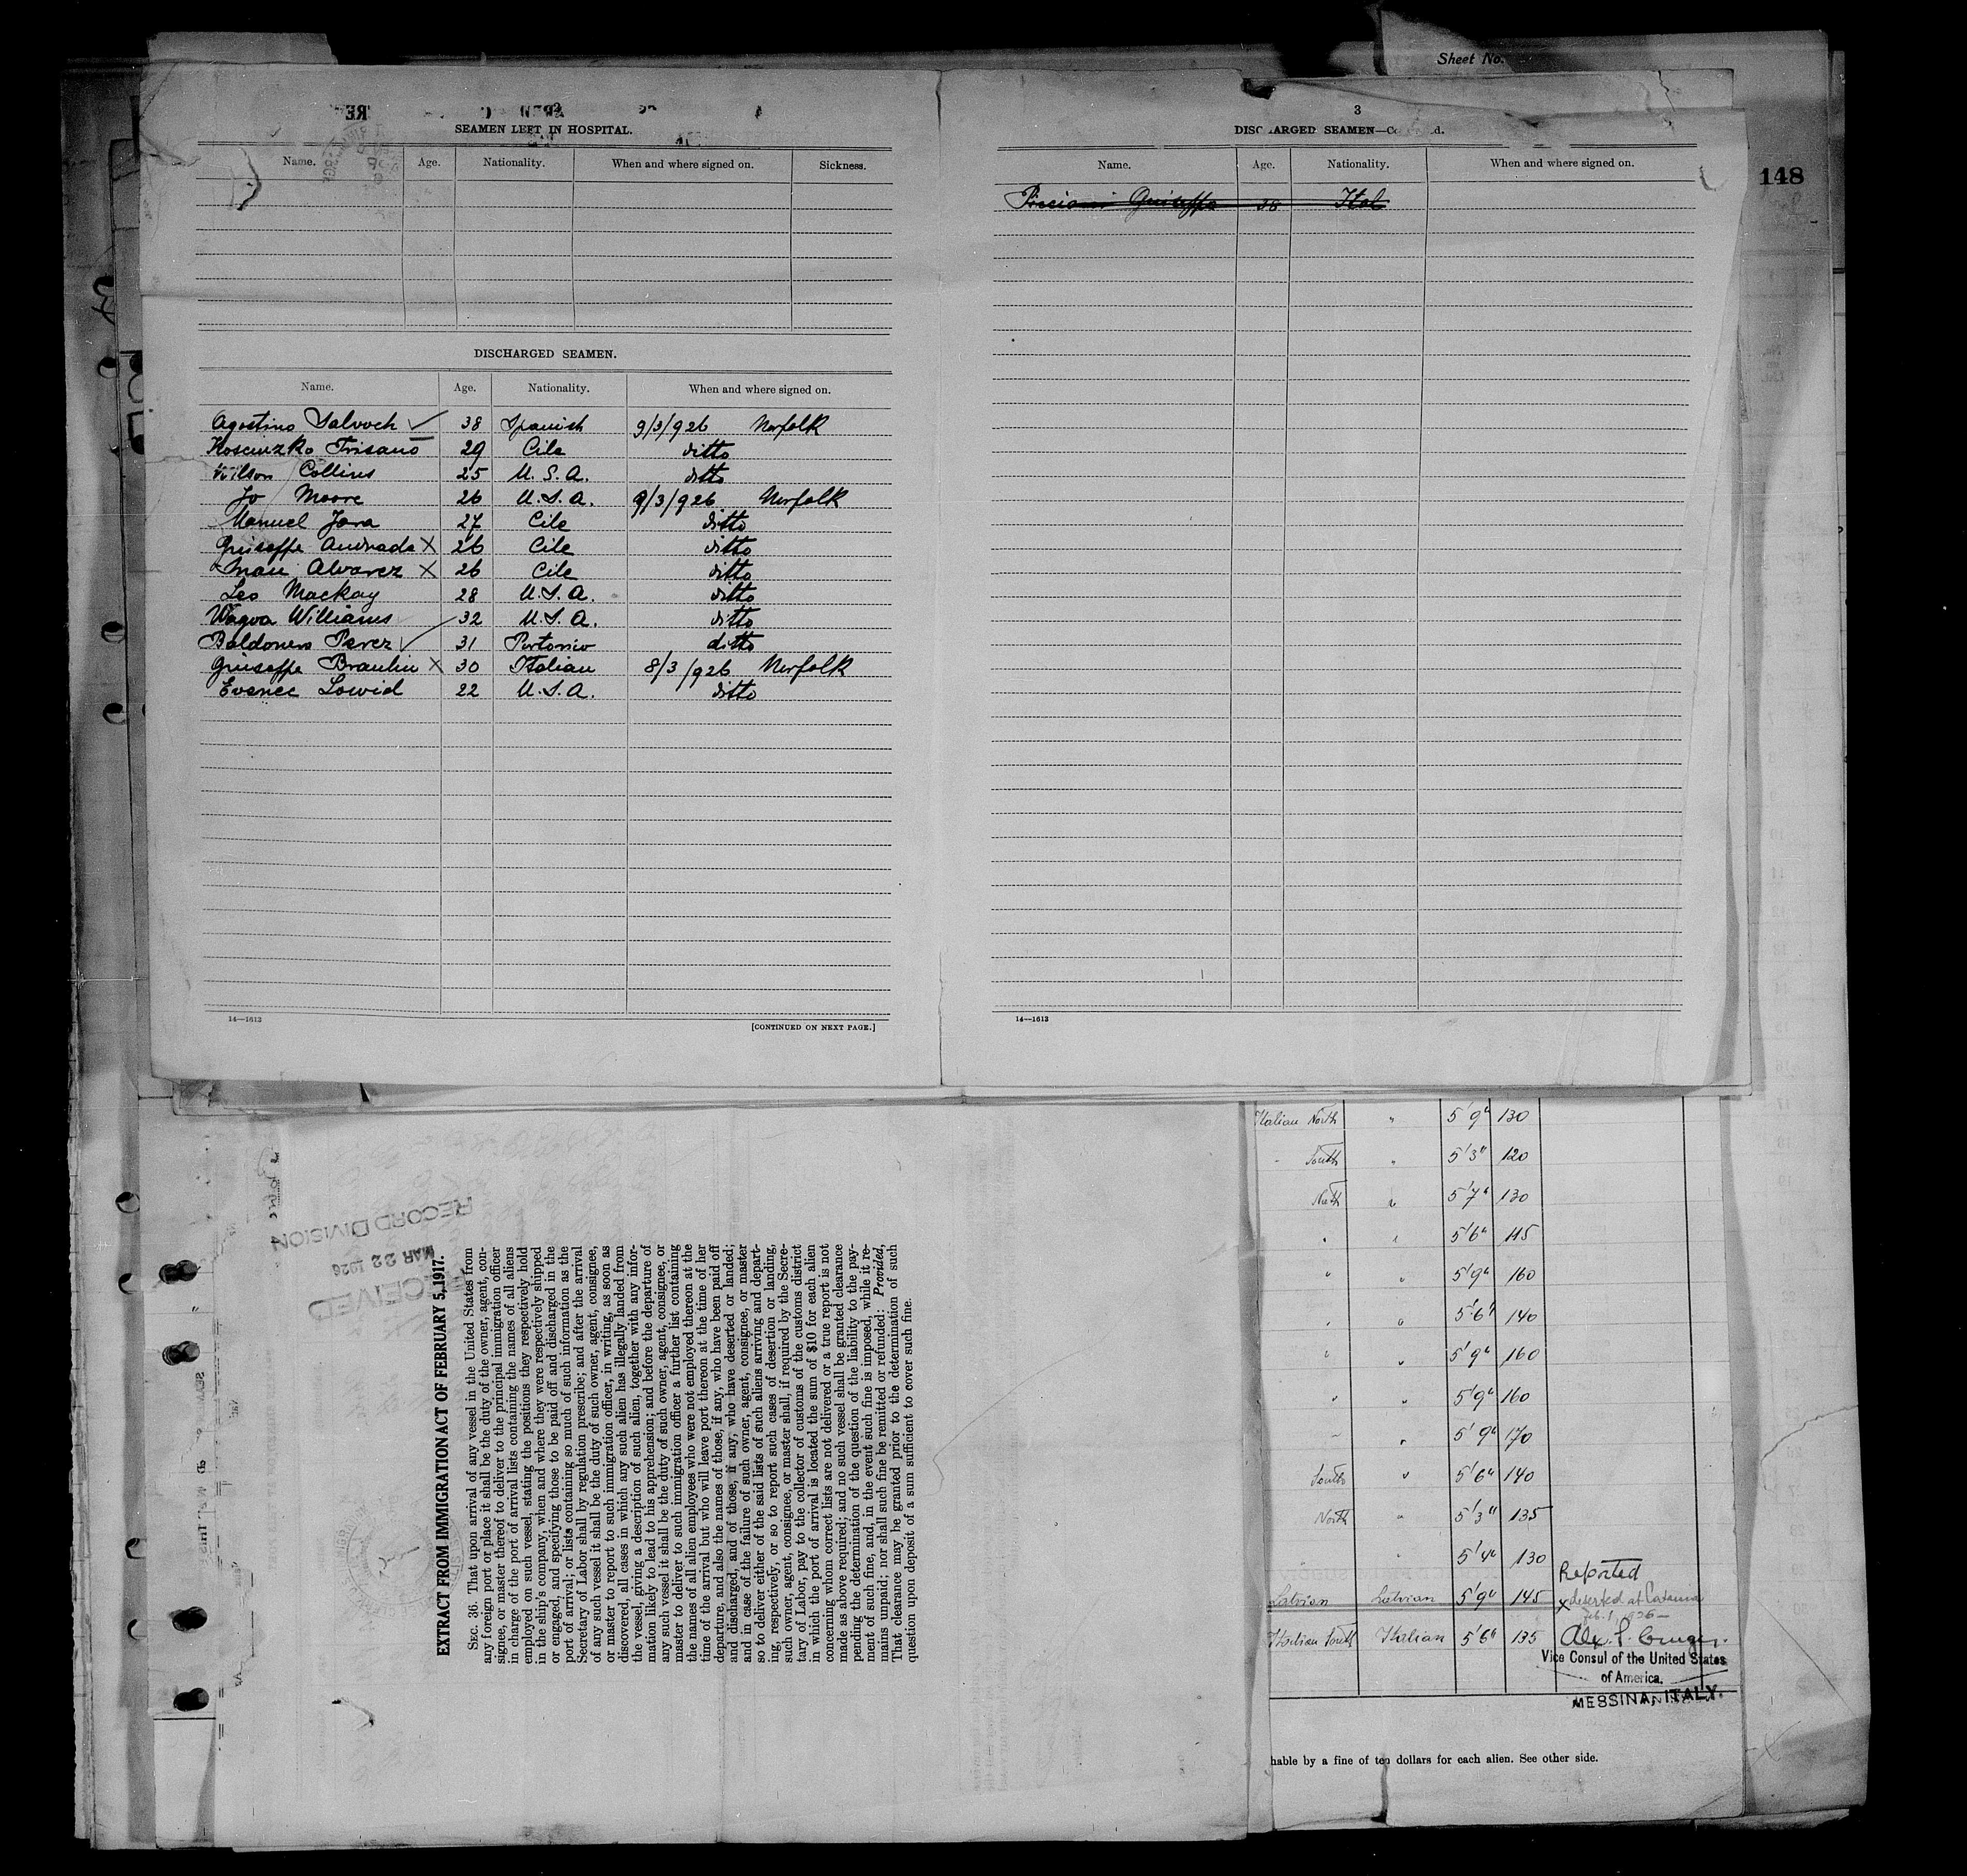 Sheet No.
148
SEAMEN LEFT IN HOSPITAL.
Name. Age. Nationality. When and where signed on. Sickness.
DISCHARGED SEAMEN.
Name. Age. Nationality. When and where signed on.
Agostino Salvoch 38 Spanish 9/3/926 Norfolk
Kosciuzko Trisano 29 Cile ditto
Wilson Collins 25 U.S.A. ditto
Jo Moore 26 U.S.A. 9/3/926 Norfolk
Manuel Jara 27 Cile ditto
Giuseffe Andrade X 26 Cile ditto
Alvarez X 26 Cile ditto
Leo Mackay 28 U.S.A. ditto
Williams 32 U.S.A. ditto
Baldonero Perez 31 Portorico ditto
Giuseffe Braulin X 30 Italian 8/3/926 Norfolk
Lowid 22 U.S.A. ditto
14—1613
[CONTINUED ON NEXT PAGE.]
3
DISCHARGED SEAMEN—
Name. Age. Nationality. When and where signed on.
38 Ital
14—1613
RECEIVED
MAR 22 1926
RECORD DIVISION
EXTRACT FROM IMMIGRATION ACT OF FEBRUARY 5, 1917.
SEC. 36. That upon arrival of any vessel in the United States from
any foreign port or place it shall be the duty of the owner, agent, con-
signee, or master thereof to deliver to the principal immigration officer
in charge of the port of arrival lists containing the names of all aliens
employed on such vessel, stating the positions they respectively hold
in the ship's company, when and where they were respectively shipped
or engaged, and specifying those to be paid off and discharged in the
port of arrival; or lists containing so much of such information as the
Secretary of Labor shall by regulation prescribe; and after the arrival
of any such vessel it shall be the duty of such owner, agent, consignee,
or master to report to such immigration officer, in writing, as soon as
discovered, all cases in which any such alien has illegally landed from
the vessel, giving a description of such alien, together with any infor-
mation likely to lead to his apprehension; and before the departure of
any such vessel it shall be the duty of such owner, agent, consignee, or
master to deliver to such immigration officer a further list containing
the names of all alien employees who were not employed thereon at the
time of the arrival but who will leave port thereon at the time of her
departure, and also the names of those, if any, who have been paid off
and discharged, and of those, if any, who have deserted or landed;
and in case of the failure of such owner, agent, consignee, or master
so to deliver either of the said lists of such aliens arriving and depart-
ing, respectively, or so to report such cases of desertion or landing,
such owner, agent, consignee, or master shall, if required by the Secre-
tary of Labor, pay to the collector of customs of the customs district
in which the port of arrival is located the sum of $10 for each alien
concerning whom correct lists are not delivered or a true report is not
made as above required; and no such vessel shall be granted clearance
pending the determination of the question of the liability to the pay-
ment of such fine, and, in the event such fine is imposed, while it re-
mains unpaid; nor shall such fine be remitted or refunded: Provided,
That clearance may be granted prior to the determination of such
question upon deposit of a sum sufficient to cover such fine.
Italian North " 5'9" 130
" South " 5'3" 120
North " 5'7" 130
" " 5'6" 115
" " 5'9" 160
" " 5'6" 140
" " 5'9" 160
" " 5'9" 160
" " 5'9" 170
South " 5'6" 140
North " 5'3" 135
" " 5'4" 130
Reported
Latvian Latvian 5'9" 145 x deserted at Catania
Feb. 1, 1926—
Italian South Italian 5'6" 135 Alex. P. Cruger.
Vice Consul of the United States
of America.
MESSINA, ITALY.
hable by a fine of ten dollars for each alien. See other side.